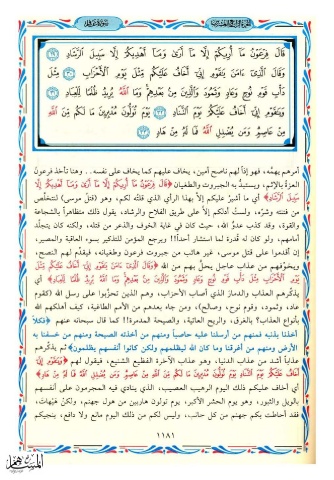 قَالَ فِرْعَوْنُ مَآ أُرِيكُمْ إِلَّا مَآ أَرَىٰ وَمَآ أَهْدِيكُمْ إِلَّا سَبِيلَ ٱلرَّشَادِ ﴿٢٩﴾
وَقَالَ ٱلَّذِىٓ ءَامَنَ يَٰقَوْمِ إِنِّىٓ أَخَافُ عَلَيْكُم مِّثْلَ يَوْمِ ٱلْأَحْزَابِ ﴿٣٠﴾ مِثْلَ
دَأْبِ قَوْمِ نُوحٍ وَعَادٍ وَثَمُودَ وَٱلَّذِينَ مِنۢ بَعْدِهِمْ وَمَا ٱللَّهُ يُرِيدُ ظُلْمًا لِّلْعِبَادِ ﴿٣١﴾
وَيَٰقَوْمِ إِنِّىٓ أَخَافُ عَلَيْكُمْ يَوْمَ ٱلتَّنَادِ ﴿٣٢﴾ يَوْمَ تُوَلُّونَ مُدْبِرِينَ مَا لَكُم مِّنَ ٱللَّهِ
مِنْ عَاصِمٍ وَمَن يُضْلِلِ ٱللَّهُ فَمَا لَهُۥ مِنْ هَادٍ ﴿٣٣﴾
أمرهم يهمّه، فهو إذاً لهم ناصح أمين، يخاف عليهم كما يخاف على نفسه.. وهنا تأخذ فرعون
العزة بالإثم، ويستبدُّ به الجبروت والطغيان ﴿قال فرعون ما أريكم إلا ما أرى وما أهديكم إلا
سبيل الرشاد﴾ أي ما أشير عليكم إلاَّ بهذا الرأي الذي قلته لكم، وهو (قتل موسى) لنتخلَّص
من فتنته وشرِّه، ولستُ أدلكم إلاَّ على طريق الفلاح والرشاد، يقول ذلك متظاهراً بالشجاعة
والقوة، وقد كذب عدوُّ الله، حيث كان في غاية الخوف والذعر من قتله، ولكنه كان يتجلَّد
أمامهم، ولو كان له قدرة لما استشار أحداً!! ويرجع المؤمن للتذكير بسوء العاقبة والمصير،
إن أقدموا على قتل موسى، غير هائب من جبروت فرعون وطغيانه، فيقدِّم لهم النصح،
ويخوِّفهم من عذاب عاجل يحلُّ بهم من الله ﴿وقال الذي آمن يا قوم إني أخاف عليكم مثل
يوم الأحزاب مثل دأب قوم نوح وعاد وثمود والذين من بعدهم وما الله يريد ظلماً للعباد﴾ أي
يذكِّرهم العذاب والدمار الذي أصاب الأحزاب، وهم الذين تحزبوا على رسل الله (كقوم
عاد، وثمود، وقوم نوح، وصالح)، ومن جاء بعدهم من الأمم الطاغية، كيف أهلكهم الله
بأنواع العذاب؟ بالغرق، والريح العاتية، والصيحة المدمرة؟! كما قال سبحانه عنهم ﴿فكلاً
أخذنا بذنبه فمنهم من أرسلنا عليه حاصباً ومنهم من أخذته الصيحة ومنهم من خسفنا به
الأرض ومنهم من أغرقنا وما كان الله ليظلمهم ولكن كانوا أنفسهم يظلمون﴾ ثم يذكِّرهم
عذاباً أشد من عذاب الدنيا، وهو عذاب الآخرة الفظيع الشنيع، فيقول لهم ﴿ويا قوم إني
أخاف عليكم يوم التناد يوم تولون مدبرين ما لكم من الله من عاصم ومن يضلل الله فما له من هاد﴾
أي أخاف عليكم ذلك اليوم الرهيب العصيب، الذي ينادي فيه المجرمون على أنفسهم
بالويل والثبور، وهو يوم الحشر الأكبر، يوم تولون هاربين من هول جهنم، ولكنْ هيهات،
فقد أحاطت بكم جهنم من كل جانب، وليس لكم من ذلك اليوم مانع ولا دافع، ينجيكم
١١٨١